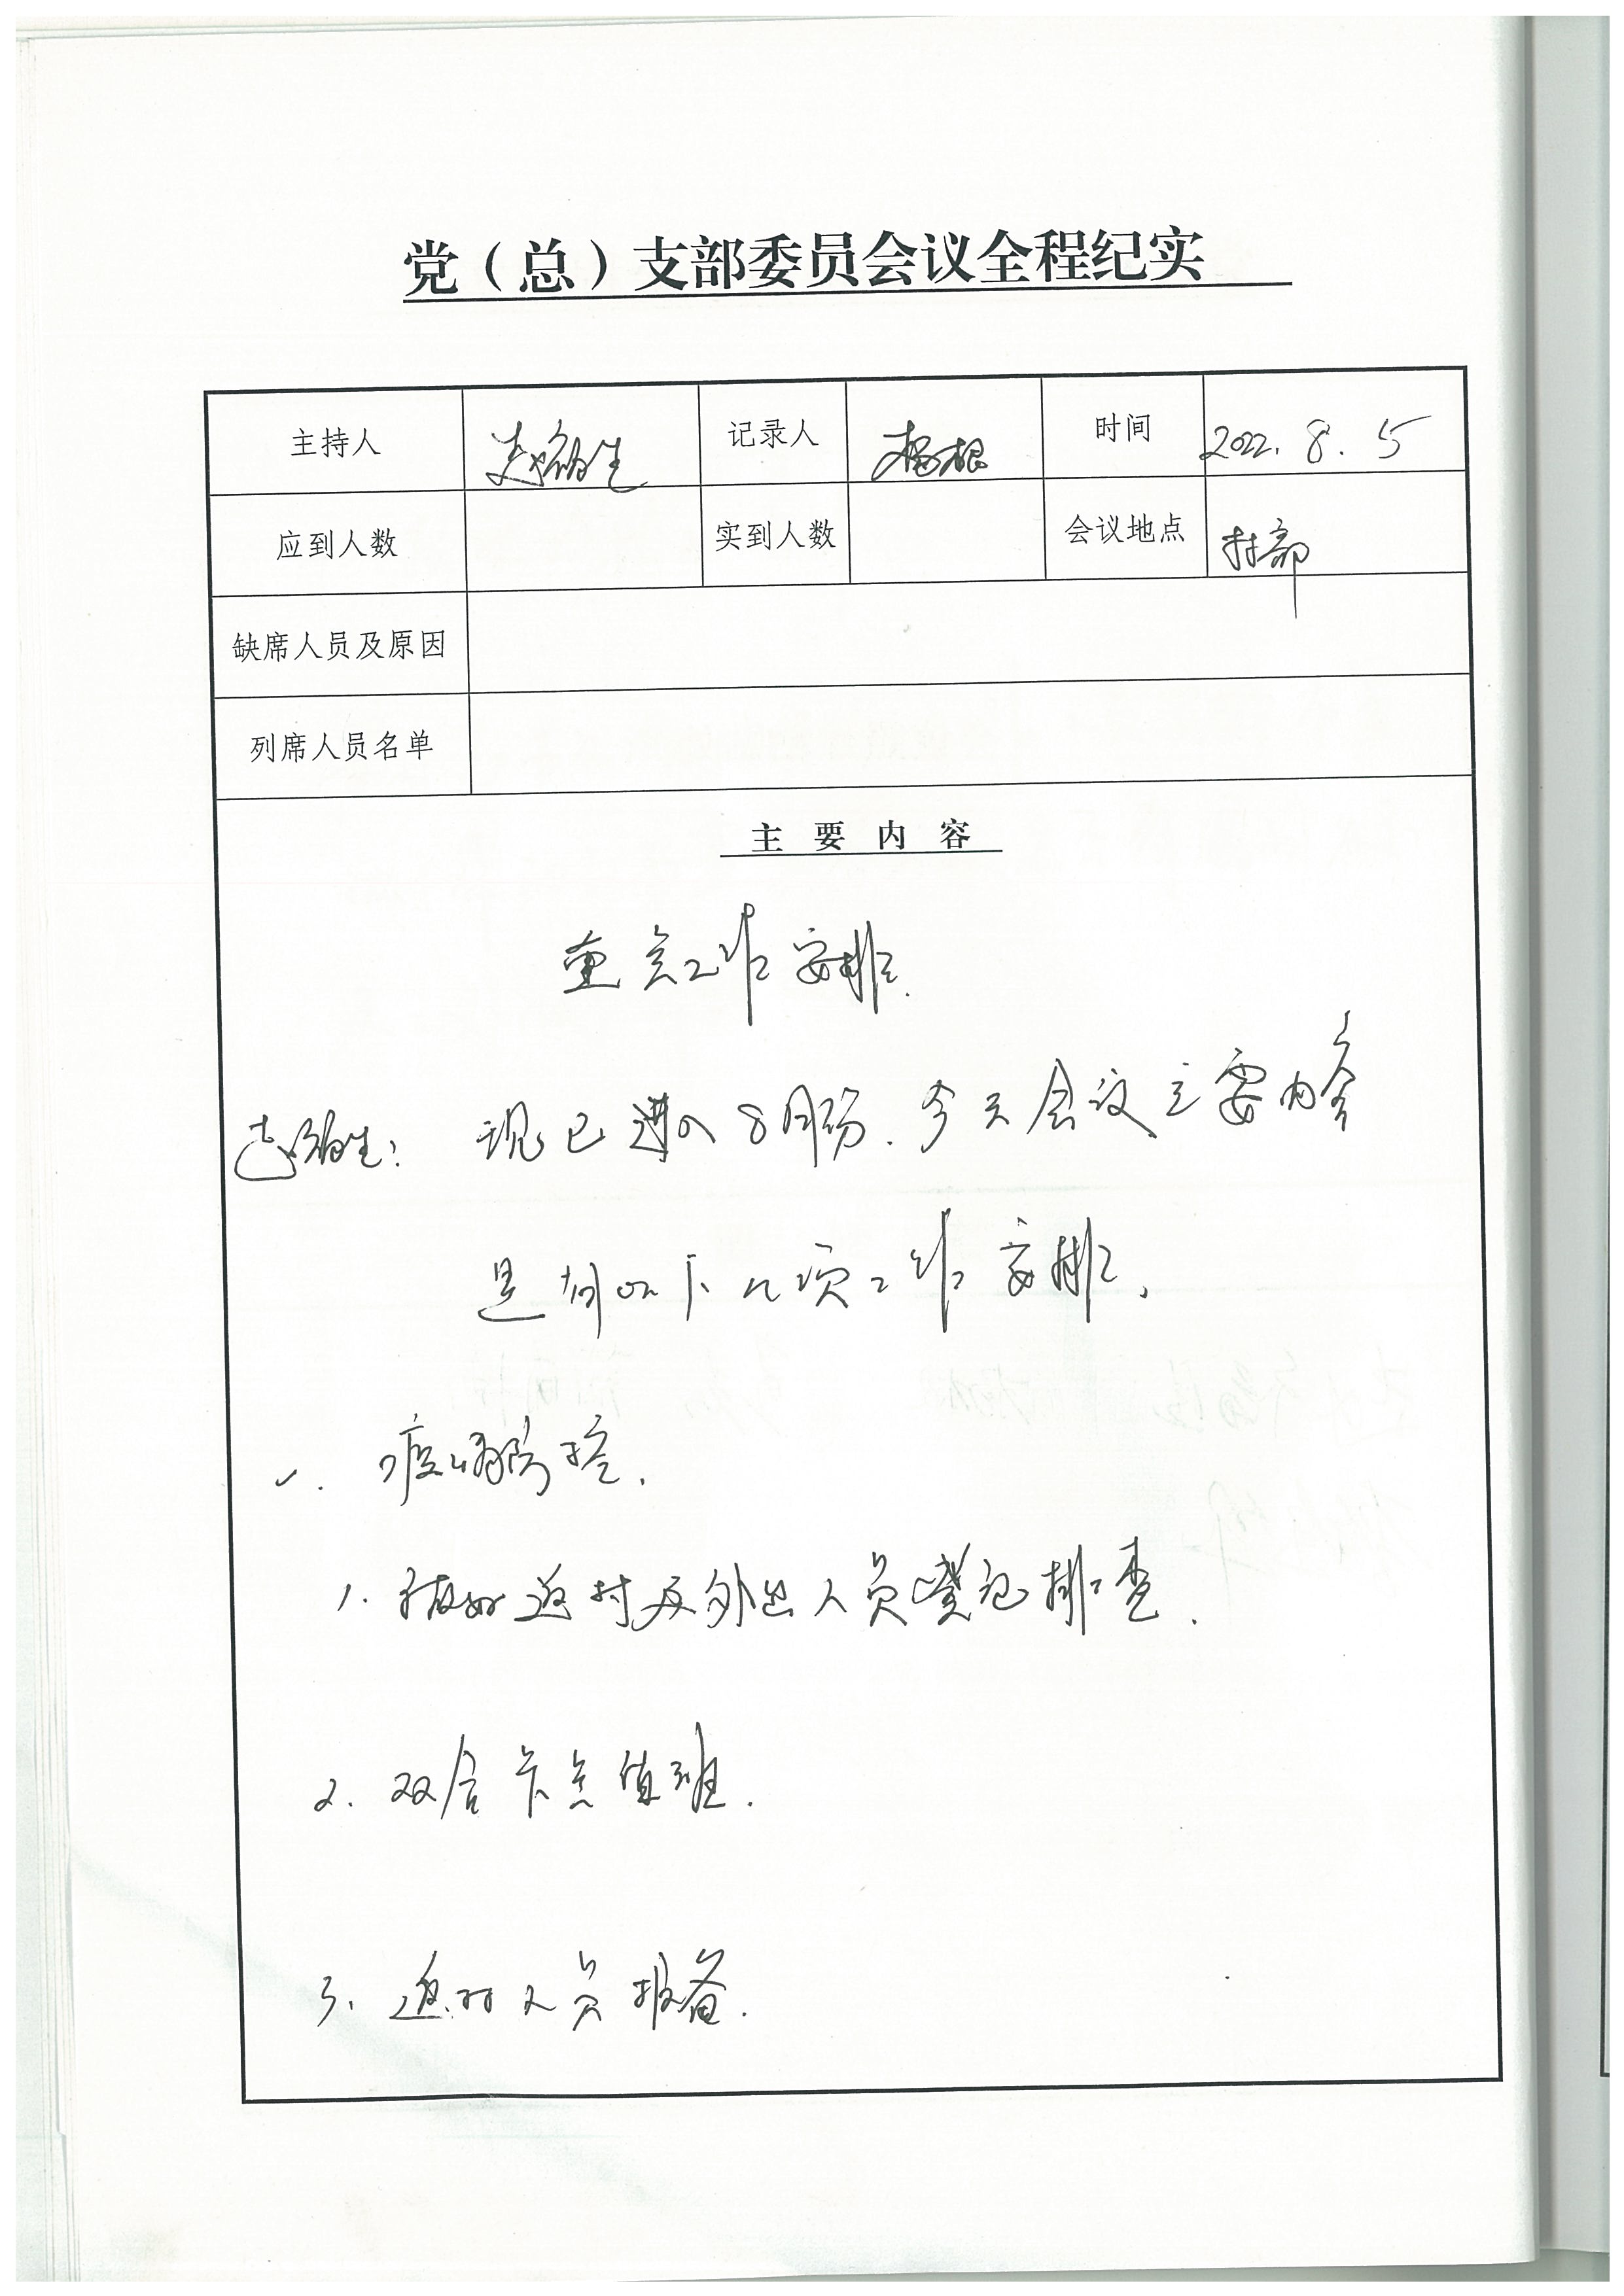 党（总）支部委员会议全程纪实
主持人 赵 生 记录人 杨根 时间 2022.8.5
应到人数 实到人数 会议地点 村部
缺席人员及原因
列席人员名单
主要内容
重点工作安排.
赵 生: 现已进入8月份.今天会议主要内容
是对以下几项工作安排.
一. 疫情防控.
1. 做好返村及外出人员登记排查.
2. 双合卡点值班.
3. 返村人员报备.